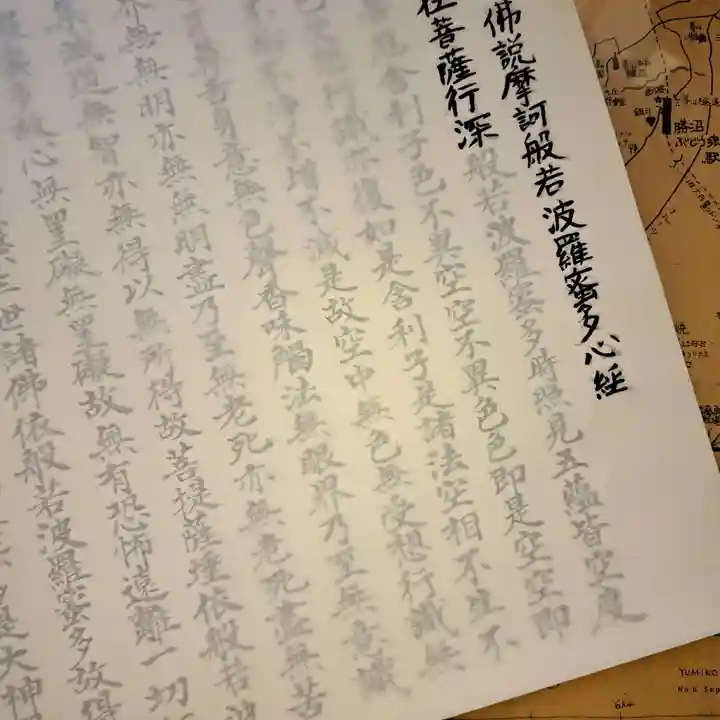 佛説摩訶般若波羅蜜多心経
在菩薩行深般若波羅蜜多時照見五蘊皆空度
舎利子色不異空空不異色色即是空空即
復如是舎利子是諸法空相不生不
不増不減是故空中無色無受想行識無
身意無色聲香味觸法無眼界乃至無意識
界無無明亦無無明盡乃至無老死亦無老死盡無苦
道無智亦無得以無所得故菩提薩埵依般若波
故心無罣礙無罣礙故無有恐怖遠離一切
三世諸佛依般若波羅蜜多故得
是大神
勝沼
ぶどう郷
駅
YUMIKO
No.6 Sep
6km